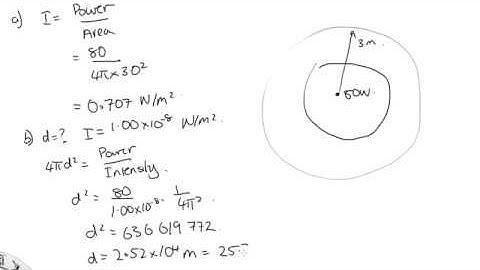 a) I = Power / Area
= 80 / 4π×30²
= 0.707 W/m².
b) d=? I = 1.00×10⁻⁸ W/m².
4πd² = Power / Intensity.
d² = 80 / 1.00×10⁻⁸ · 1 / 4π²
d² = 636 619 772
d = 2.52×10⁴ m = 25.
3m.
80W.